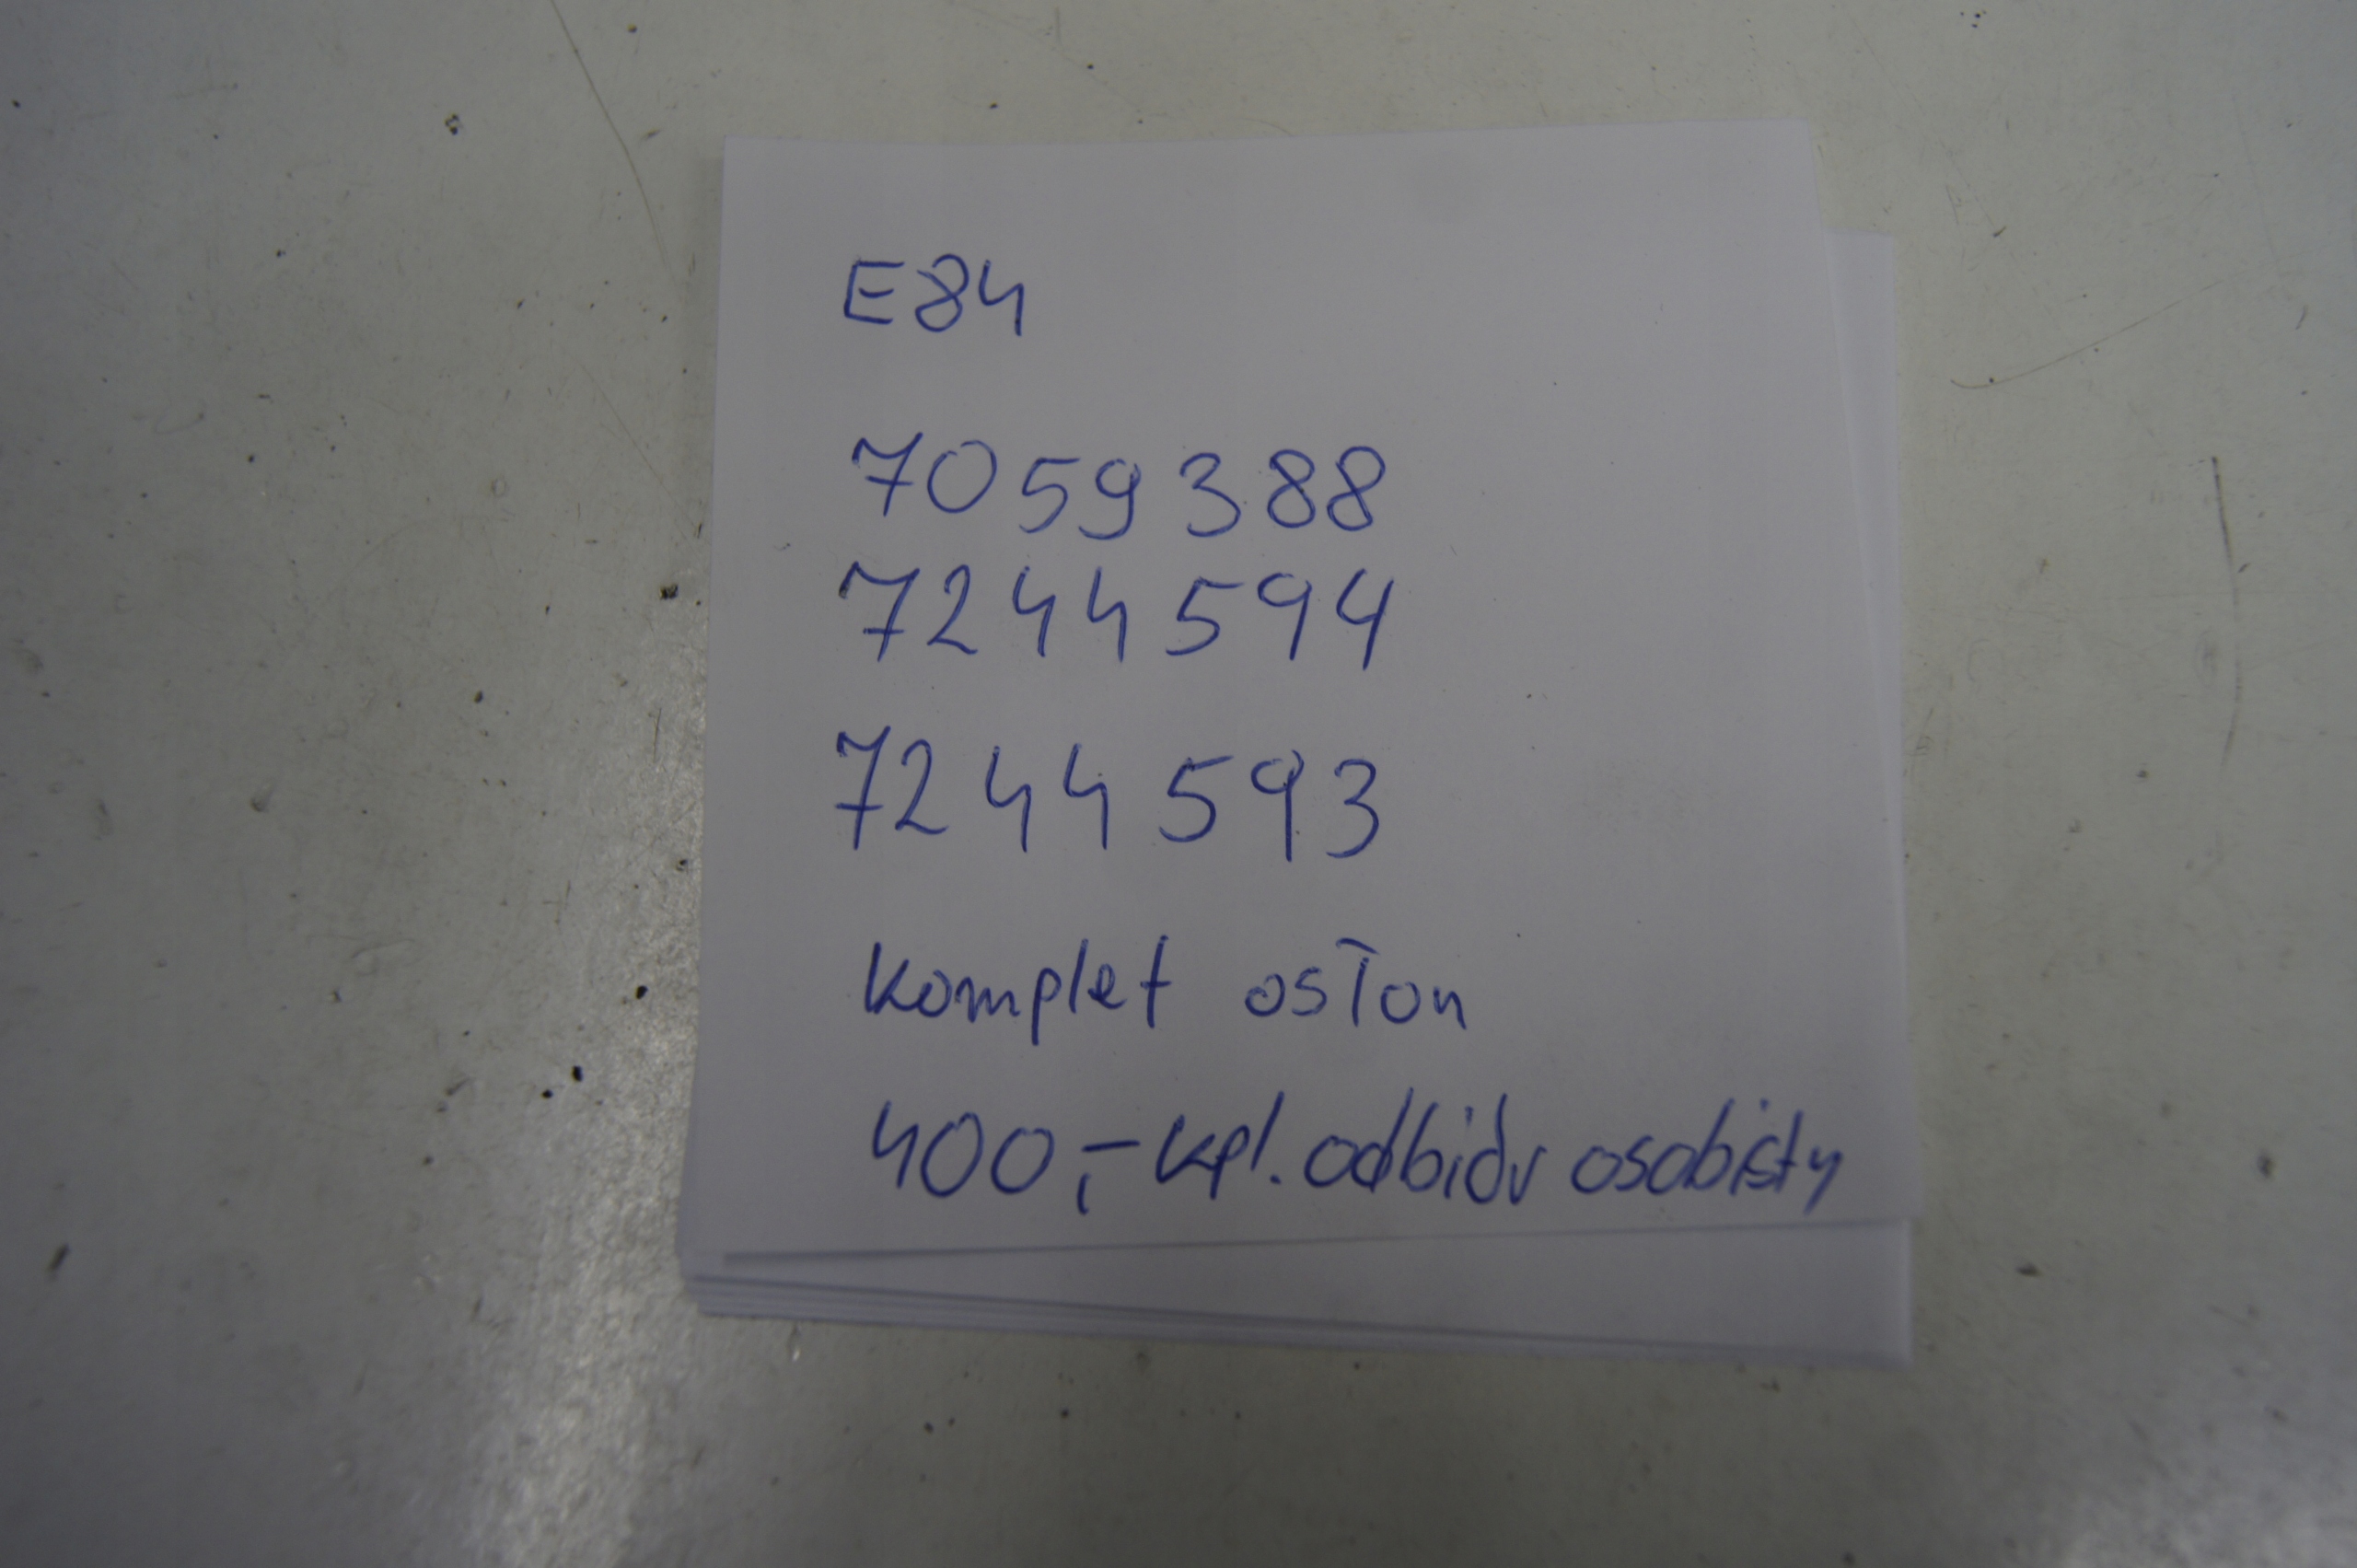 E84
7059388
7244594
7244593
komplet osłon
400,- kpl. odbiór osobisty